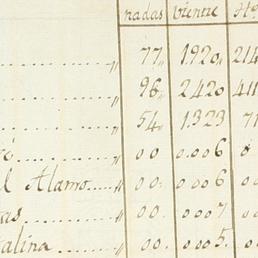 nadas Vientre Hs
77,, 1920,, 214
96,, 2420 411
54,, 1323 71
00 0.006 0
l Alamo 00: 0006
as 00. 0007
alina 00. 005.